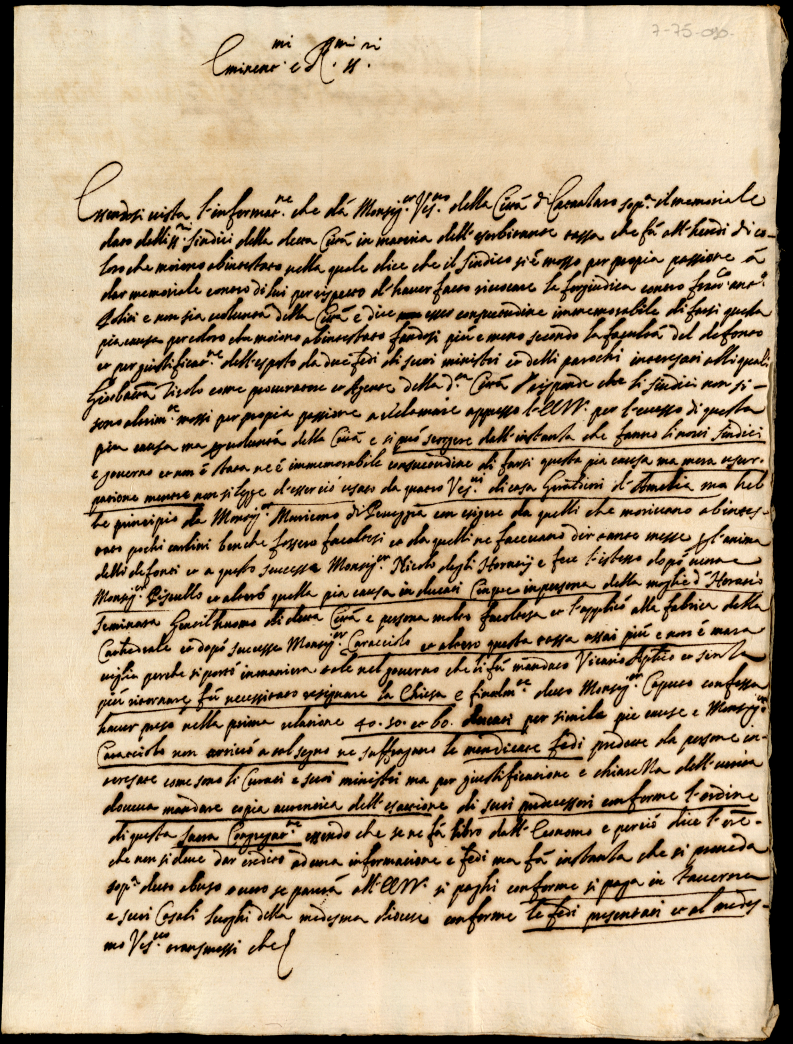 7-75-090.
Eminent.mi e R.mi SS.ri
Essendosi vista l'informat.ne che dà Monsig.r Vesc.vo della Città di Catanzaro sop.a il memoriale
dato dalli SS.ri Sindici della detta Città in materia dell'esorbitante tassa che fà all'heredi di co-
loro che moiono abintestato nella quale dice che il Sindico si è mosso per propia passione à
dar memoriale contro di lui per rispetto d'haver fatto revocare la forgiudica contro
e non sia voluntà della Città e dice esser consuetudine immemorabile di farsi questa
pia causa per coloro che moiono abintestato facendosi più e meno secondo la facultà del defonto
et per giustificat.ne dell'esposto dà due fedi di suoi ministri et delli parochi interessati alli quali
come procuratore et Agente della d.ta Città risponde che li Sindici non si-
sono altrim.te mossi per propia passione à reclamare appresso l'EE.VV. per l'eccesso di questa
pia causa ma voluntà della Città e si può scorgere dall'instanza che fanno li novi Sindici
e governo et non è stata ne è immemorabile consuetudine di farsi questa pia causa ma mera usur-
patione mentre non si legge d'esserci usato da quatro Vesc.vi di casa Geraldini d'Amelia ma heb-
be principio da Monsig.r di con esigere da quelli che morivano abintes-
tato pochi carlini benche fossero facoltosi et da quelli ne facevano dir tante messe p l'anima
delli defonti et a questo successe Monsig.r Nicolò degli Horatij e fece l'istesso dopò venne
Monsig.r Piscullo et alterò quella pia causa in ducati cinque in persona della moglie d' Horatio
Seminara Gentilhuomo di detta Città e persona molto facoltosa et l'applicò alla fabrica della
Cathedrale et dopò successe Monsig.r Caracciolo et alterò questa tassa assai più e non è mara-
viglia perche si portò in maniera tale nel governo che vi fù mandato Vicario Ap.lico et senza
più ritornare fù necessitato resignare la Chiesa e finalm.te detto Monsig.r Capuco confessa
haver preso nella prima relatione 40. 50. et 60. ducati per simile pie cause e Monsig.r
Caracciolo non arrivò a tal segno ne suffragano le mendicate fedi prodotte da persone in-
teressate come sono li Curati e suoi ministri ma per giustificatione e chiarezza dell'
doveva mandare copia autentica dell'esattione di suoi predecessori conforme l'ordine
di questa Sacra Congregat.ne essendo che se ne fà libro dall'Economo e perciò dice l'ore-
che non si deve dar credito ad una informatione e fedi ma fà instanza che si proveda
sop.a detto abuso overo se parerà all'EE.VV. si paghi conforme si paga in Taverna
e suoi Casali luoghi della medesma diocese conforme le fedi presentati et al medes-
mo Vesc.vo transmessi che